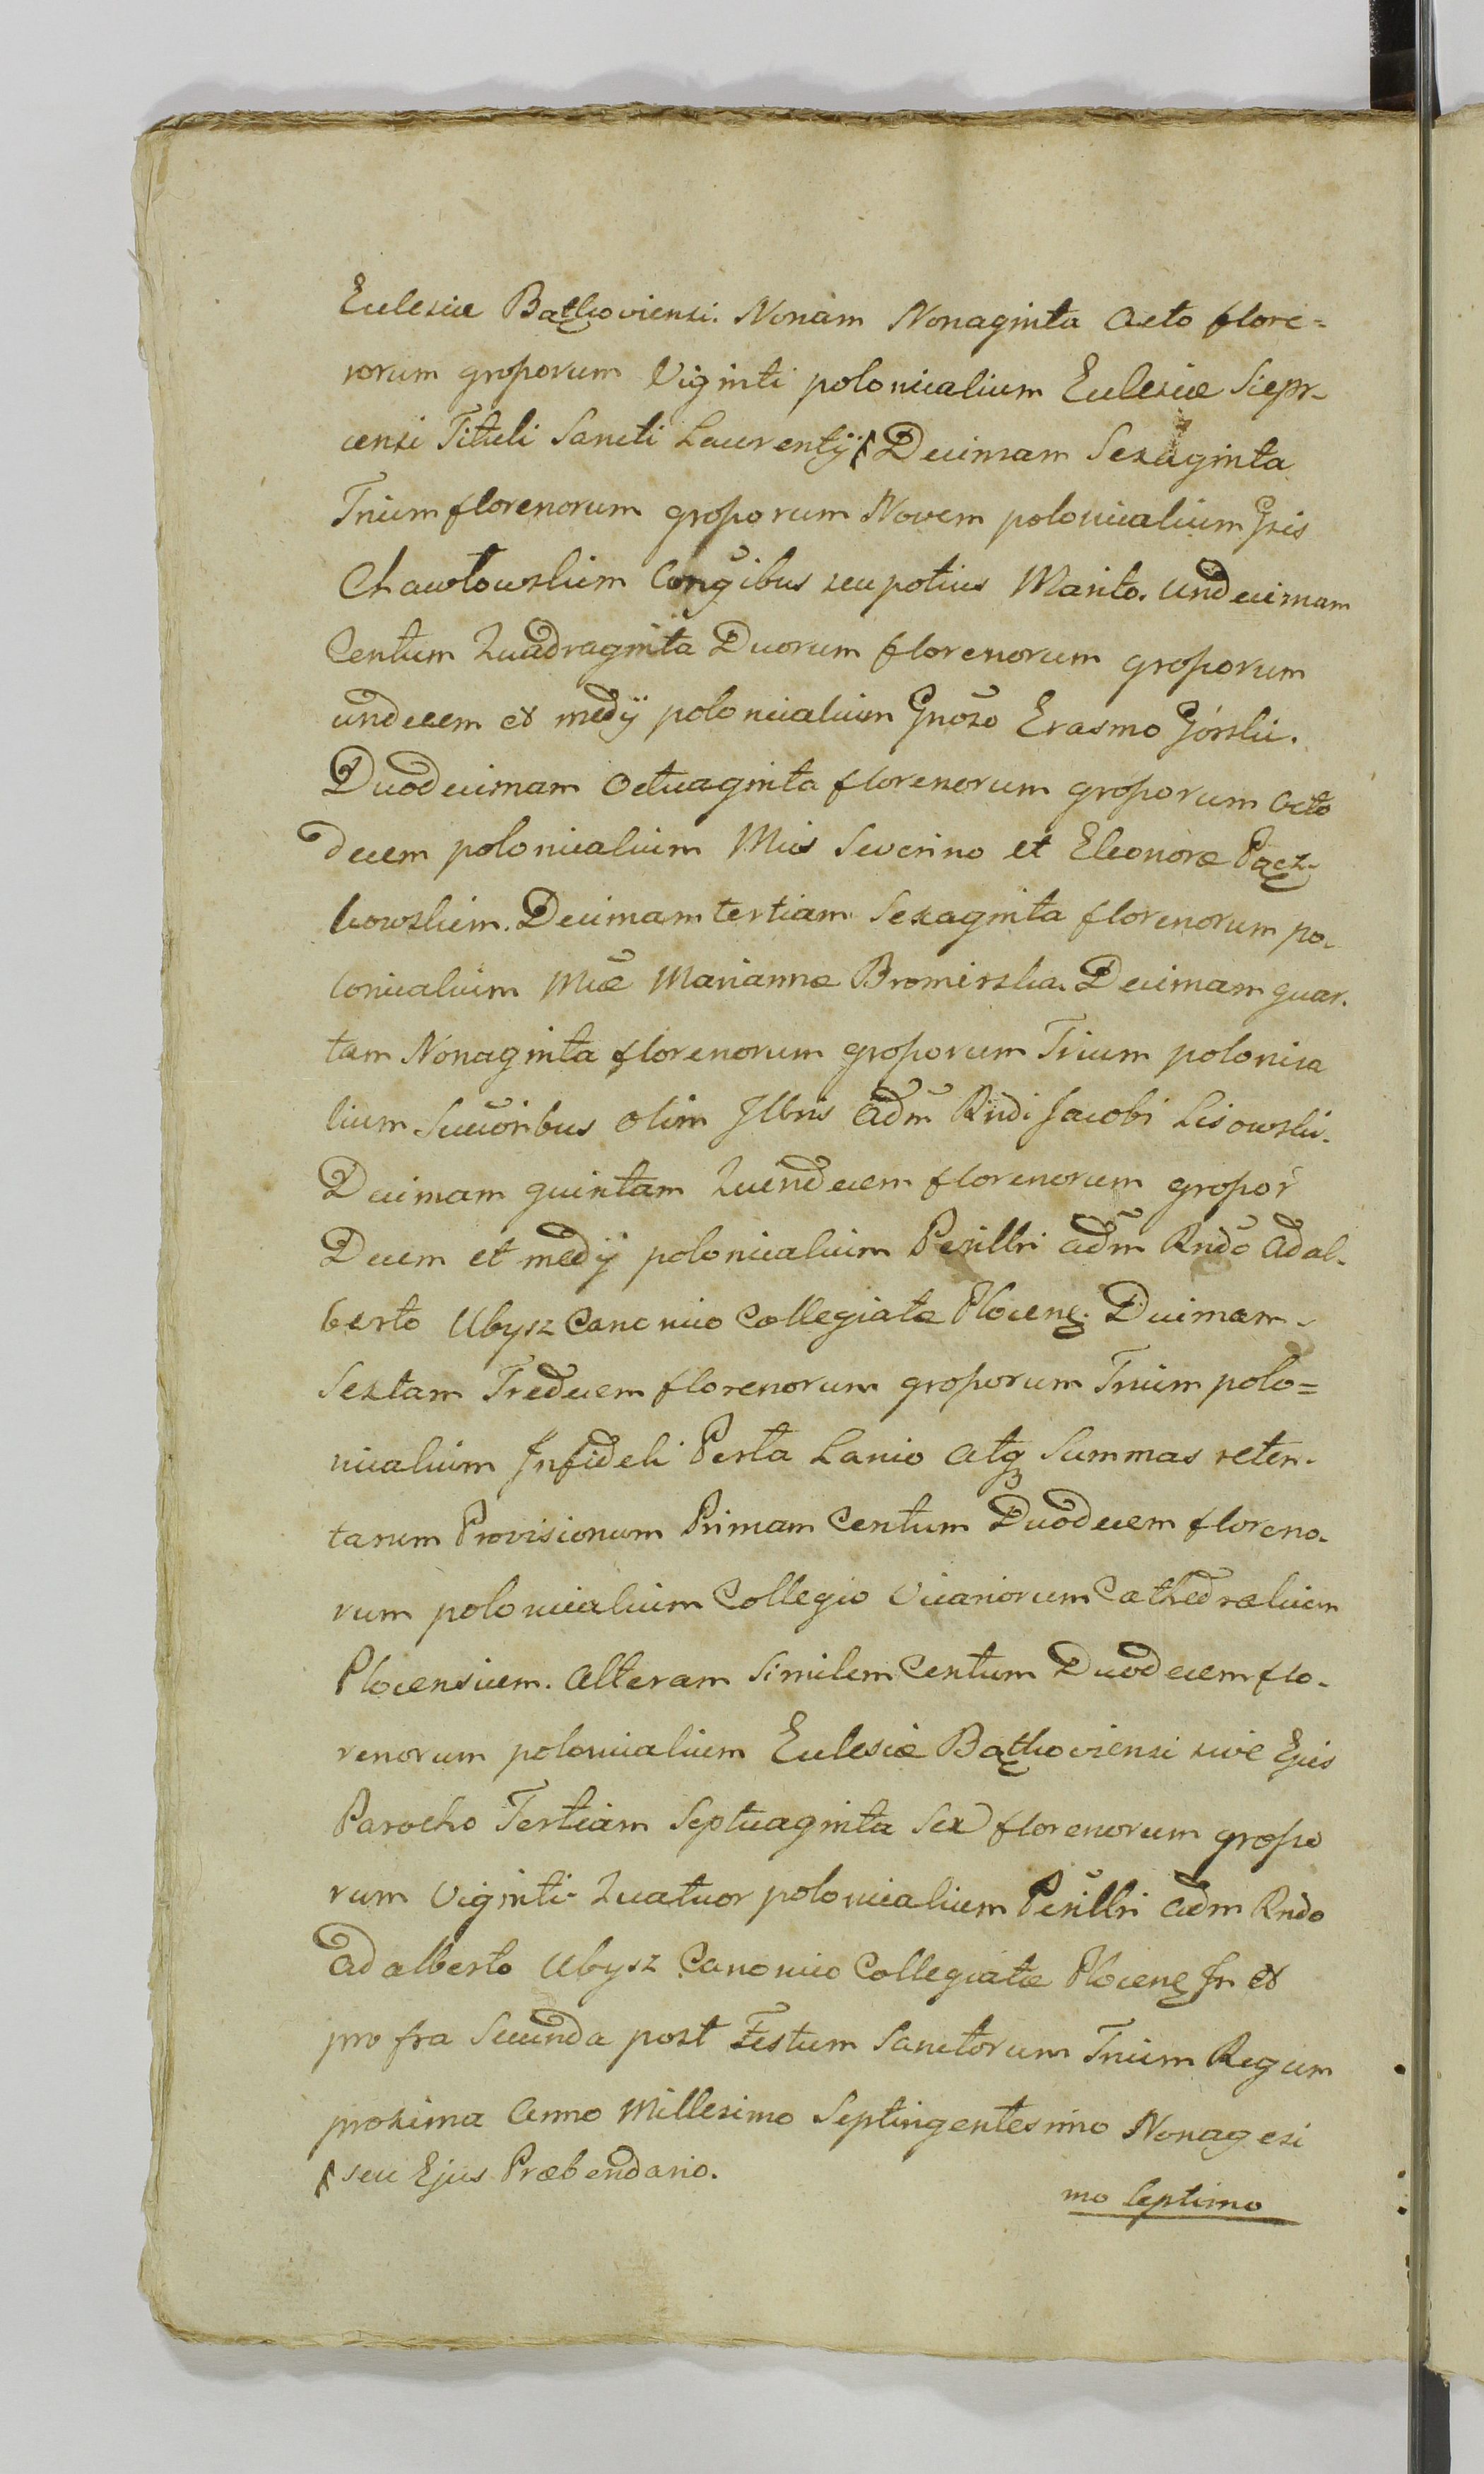 Ecclesiæ Bądkoviensi. Nonam Nonaginta Octo flore=
norum grossorum Viginti polonicalium Ecclesiæ Siepr-
censi Tituli Sancti Laurentij Decimam Sexaginta
Trium florenorum grossorum Novem polonicalium Gsis
Chawłowskim Conȷ̃gibus seu potius Marito. Undecimam
Centum Quadraginta Duorum florenorum grossorum
undecem et medij polonicalium Gnõso Erasmo Górski.
Duodecimam Octuaginta florenorum grossorum Octo
decem polonicalium Mcis Severino et Eleonoræ Pącz-
kowskim. Decimam tertiam Sexaginta florenorum po-
lonicalium Mcæ Mariannæ Bromirska. Decimam quar-
tam Nonaginta florenorum grossorum Trium polonica
lium Succõribus olim Illris adm̃ Rñdi Jacobi Lisowski.
Decimam quintam Quindecem florenorum grossor̃
Decem et medij polonicalium Perillri adm̃ Rñdo Adal-
berto Ubysz Canonico Collegiatæ Plocenẹ. Decimam
Sextam Tredecem florenorum grossorum Trium polo=
nicalium Infideli Perla Lanio atq Summas reten-
tarum Provisionum Primam Centum Duodecem floreno-
rum polonicalium Collegio Vicariorum Cathedralium
Plocensium. Alteram Similem Centum Duodecem flo-
renorum polonicalium Ecclesiæ Bądkoviensi sive Ejus
Parocho Tertiam Septuaginta Sex florenorum grosso
rum Viginti Quatuor polonicalium Perillri adm Rndo
Adalberto Ubysz Canonico Collegiatæ Plocenẹ In et
pro fra Secunda post Festum Sanctorum Trium Regum
proxima Anno Millesimo Septingentesimo Nonagesi
seu Ejus Præbendario.
mo septimo